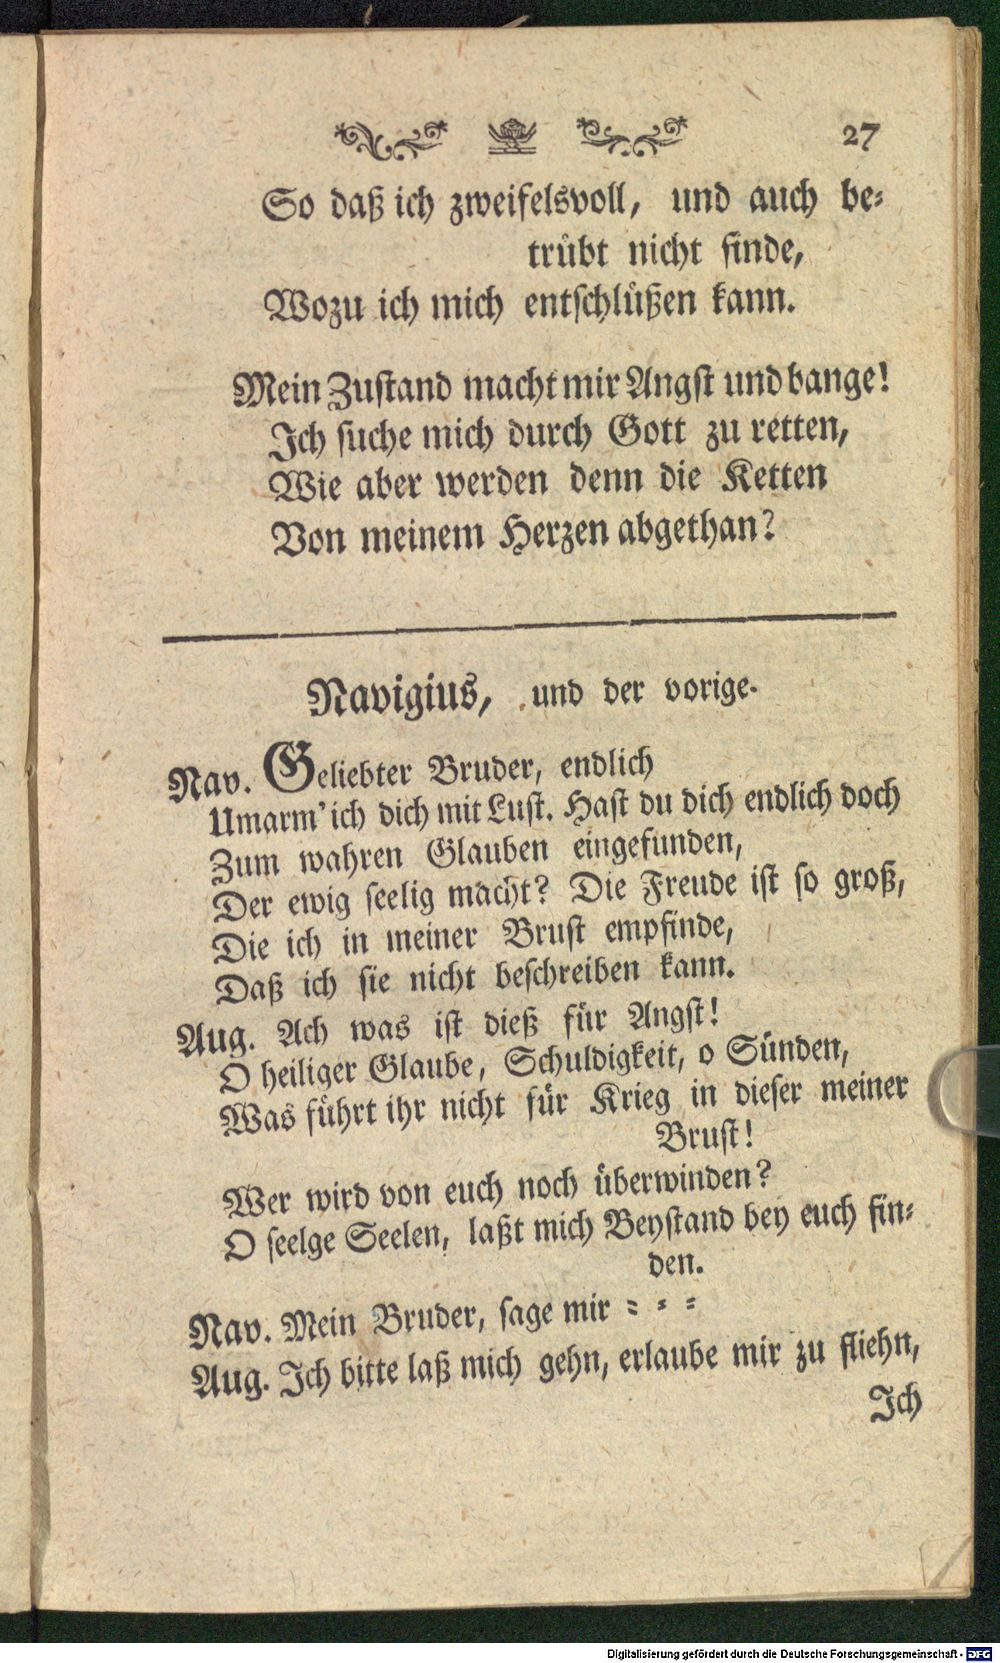 27
So daß ich zweifelsvoll, und auch be⸗
trübt nicht finde,
Wozu ich mich entschlüßen kann.
Mein Zustand macht mir Angst und bange!
Ich suche mich durch Gott zu retten,
Wie aber werden denn die Ketten
Von meinem Herzen abgethan?
Navigius, und der vorige.
Nav. Geliebter Bruder, endlich
Umarm' ich dich mit Lust. Hast du dich endlich doch
Zum wahren Glauben eingefunden,
Der ewig seelig macht? Die Freude ist so groß,
Die ich in meiner Brust empfinde,
Daß ich sie nicht beschreiben kann.
Aug. Ach was ist dieß für Angst!
O heiliger Glaube, Schuldigkeit, o Sünden,
Was führt ihr nicht für Krieg in dieser meiner
Brust!
Wer wird von euch noch überwinden?
O seelge Seelen, laßt mich Beystand bey euch fin⸗
den.
Nav. Mein Bruder, sage mir ⸗ ⸗ ⸗
Aug. Ich bitte laß mich gehn, erlaube mir zu fliehn,
Ich
Digitalisierung gefördert durch die Deutsche Forschungsgemeinschaft - DFG